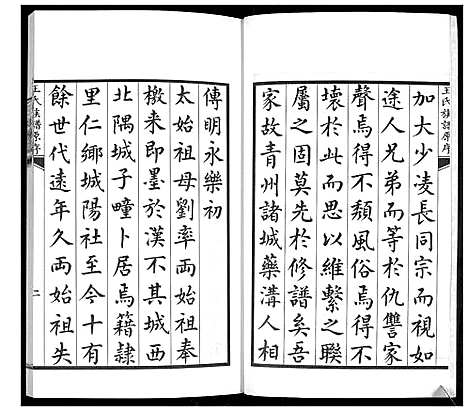 王氏族譜原序
加大少凌長同宗而視如
途人兄弟而等於仇讐家
聲焉得不頹風俗焉得不
壞於此而思以維繫之聯
屬之固莫先於修譜矣吾
家故青州諸城藥溝人相
傳明永樂初
太始祖母劉率両始祖奉
檄来即墨於漢不其城西
北隅城子疃卜居焉籍隸
里仁鄉城陽社至今十有
餘世代遠年久両始祖失
王氏族譜原序
二